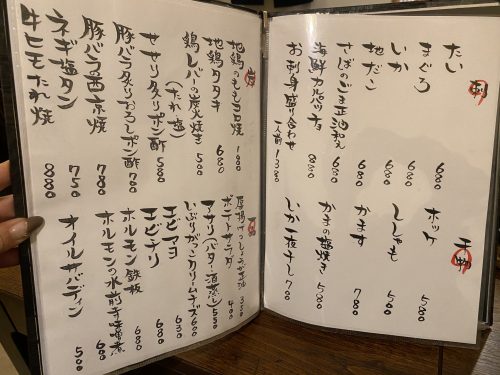 刺
たい 680
まぐろ 680
いか 680
地だこ 680
さばのごま正油和え 680
海鮮カルパッチョ 880
お刺身盛り合わせ 一人前 1380
干物
ホッケ 580
ししゃも 500
かます 780
かまの塩焼き 580
いか一夜干し 700
地鶏のもも炭火焼 980
地鶏タタキ 680
鶏レバーの炭火焼き 500
(たれ・塩)
せせり炙りポン酢 580
豚バラ炙りおろしポン酢 700
豚バラの西京焼 780
ネギ塩タン 750
牛ヒモたれ焼 880
厚揚げ
ポテトサラダ 400
アサリ(バター・酒蒸し) 550
いぶりがっこクリームチーズ 600
エビマヨ 630
エビチリ 680
ホルモン鉄板 680
ホルモンの水前寺味噌煮 680
オイルサバディン 500